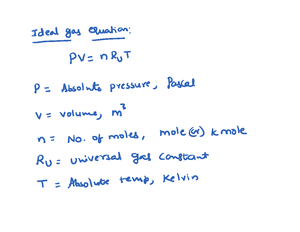 Ideal gas equation:
PV = n RU T
P = Absolute pressure, Pascal
V = Volume, m³
n = No. of moles, mole (or) k mole
RU = Universal gas constant
T = Absolute temp, Kelvin